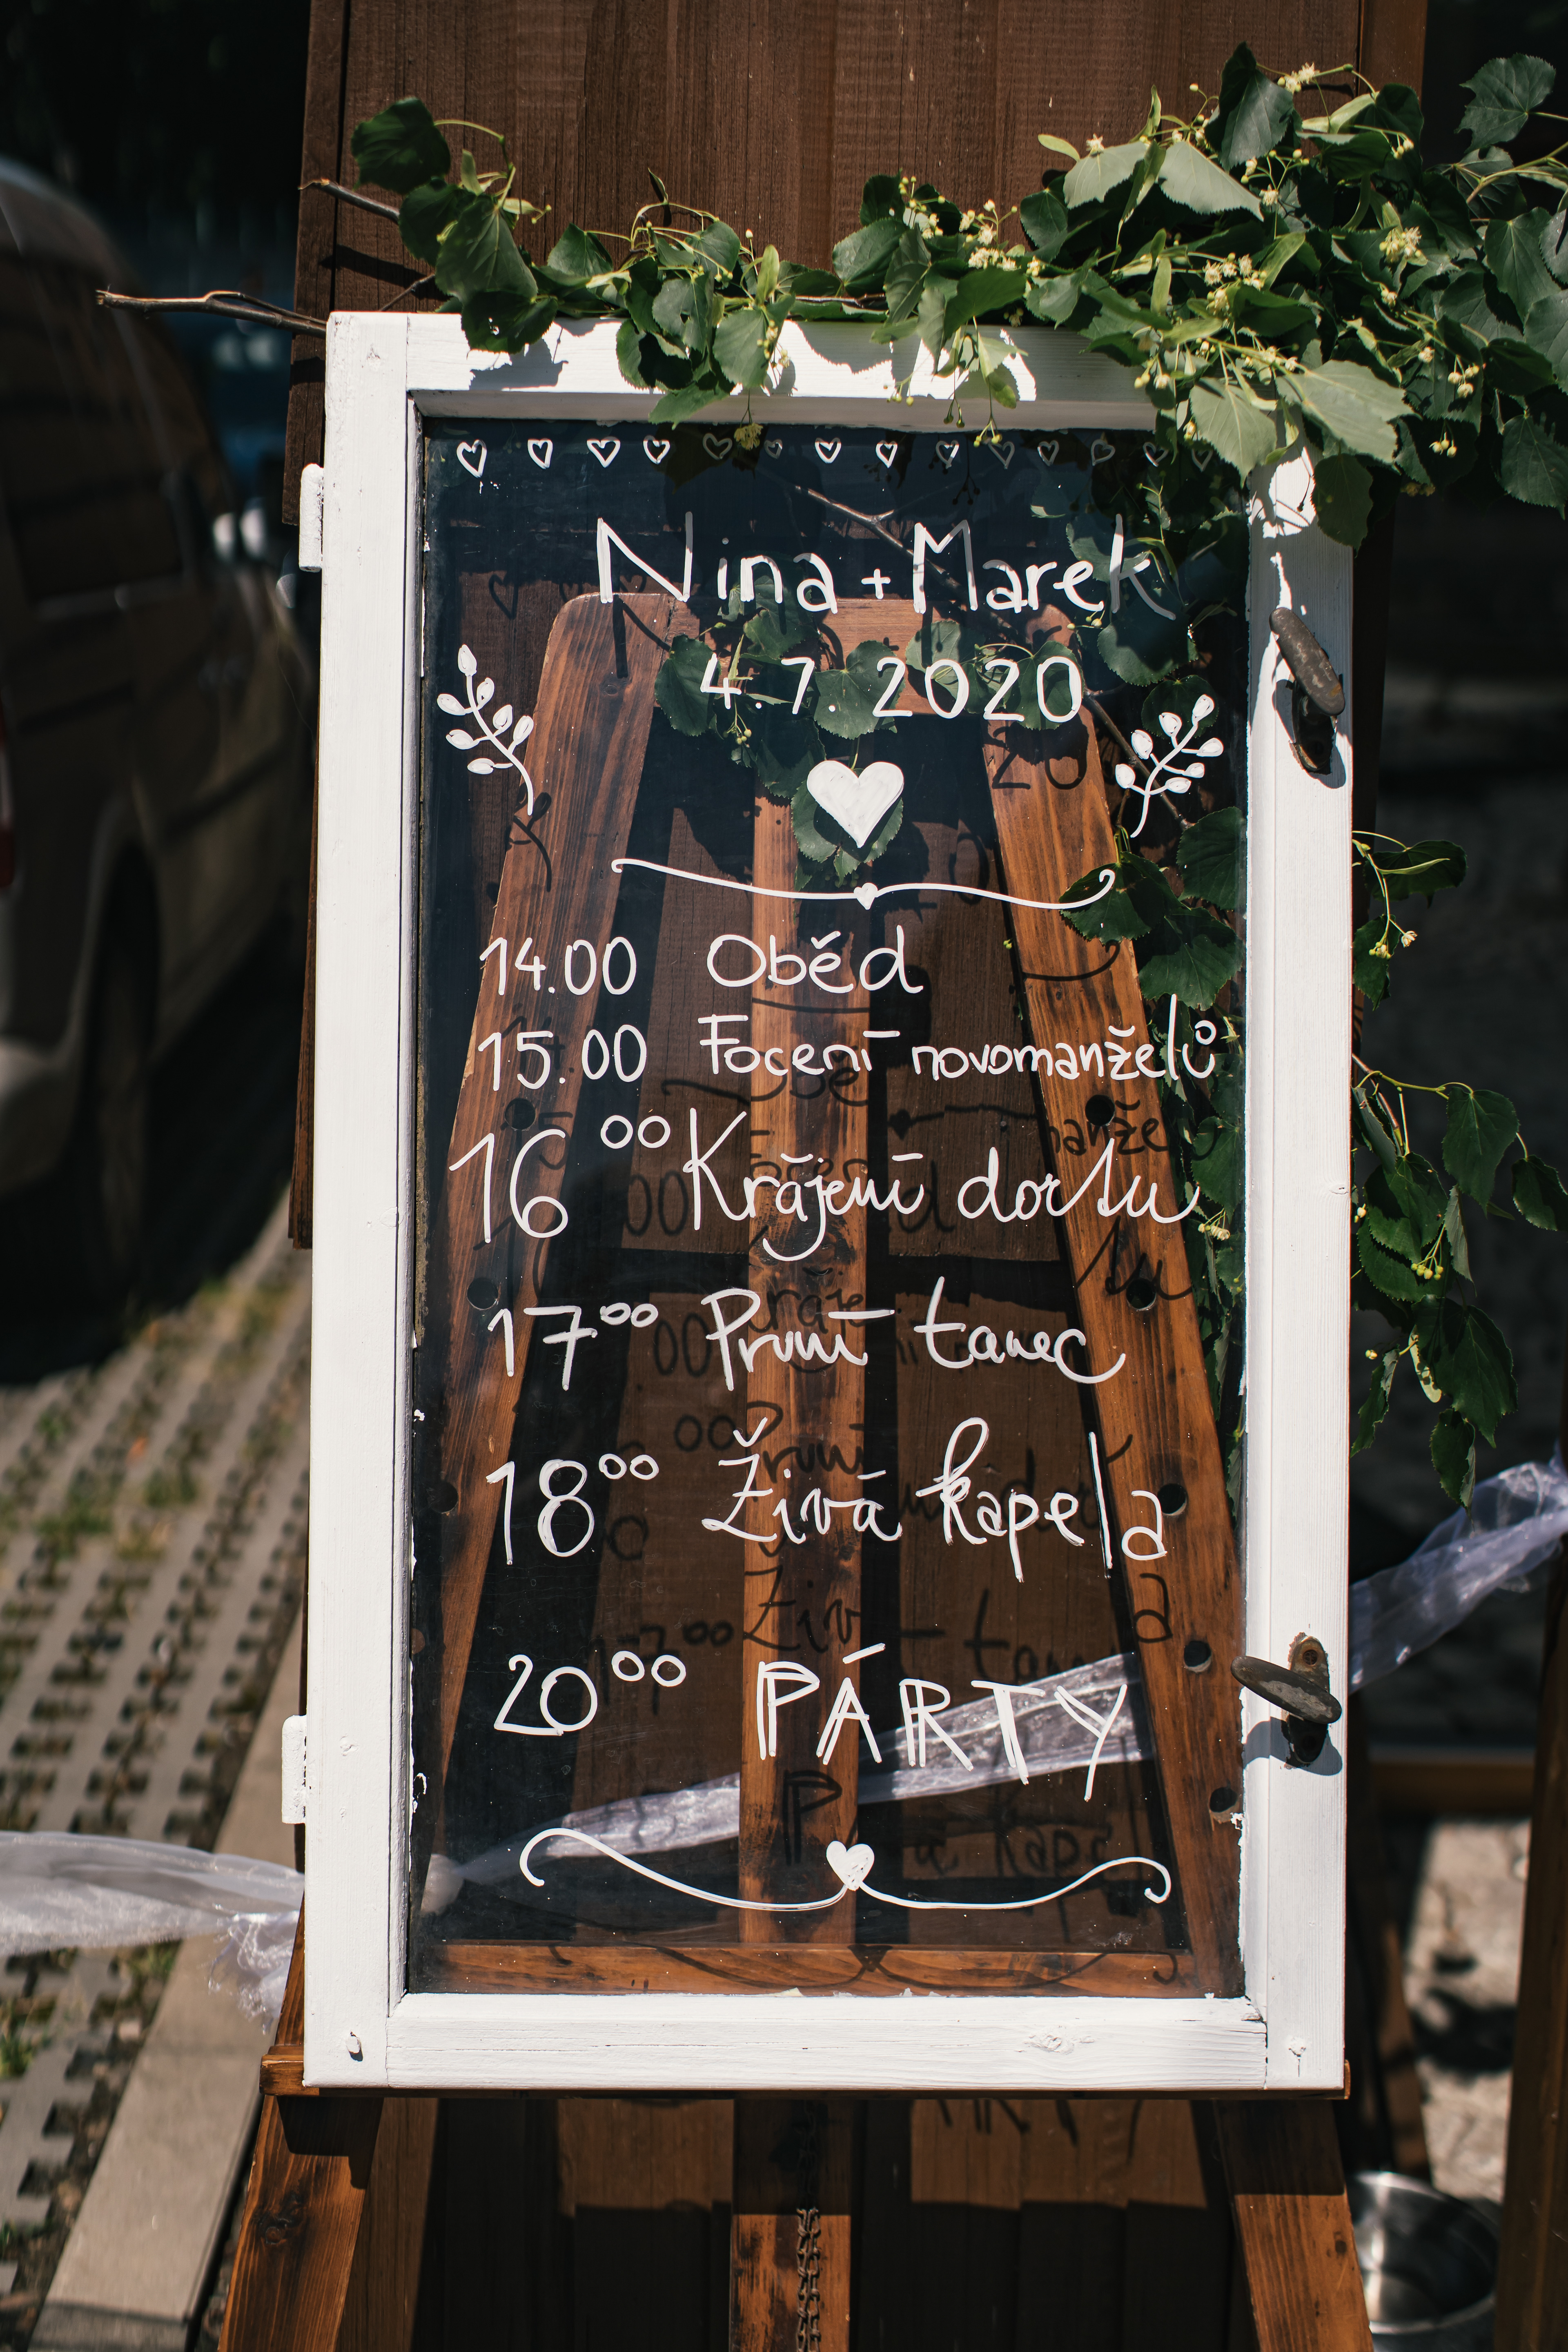 Nina + Marek
4.7.2020
14.00 Oběd
15.00 Focení novomanželů
16 00 Krájení dortu
17 00 První tanec
18 00 Živá kapela
20 00 PÁRTY